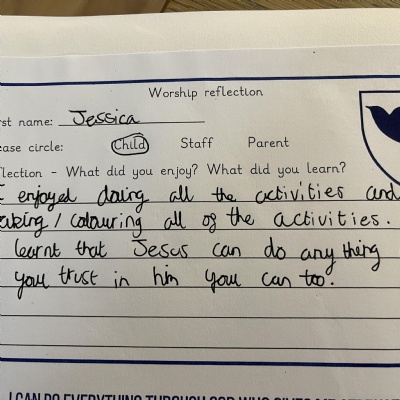 Worship reflection
rst name: Jessica
ase circle: Child Staff Parent
flection - What did you enjoy? What did you learn?
I enjoyed doing all the activities and
aking / colouring all of the activities.
learnt that Jesus can do anything
you trust in him you can too.
I CAN DO EVERYTHING THROUGH GOD WHO GIVES ME